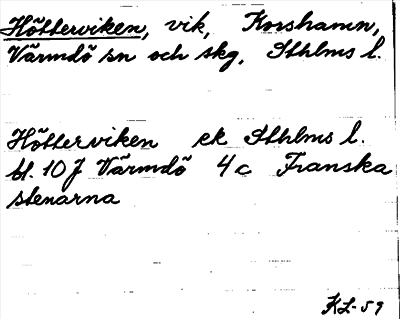 Hötterviken, vik, Korshamn,
Värmdö sn och skg, Sthlms l.
Hötterviken ek Sthlms l.
bl. 10 J Värmdö 4 c Franska
stenarna
KL-59